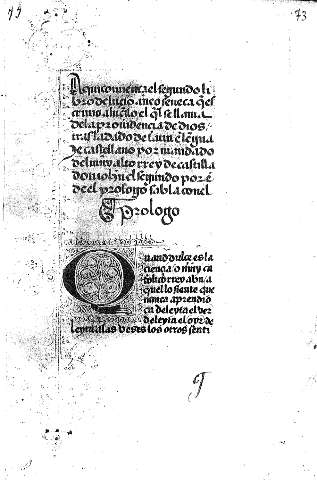 73
Aqui comiença el segundo li
bro de lucio aneo seneca q̃ es
criuio a luçilo el ql̃ se llama
de la prouidençia de dios/
trasladado de latin ẽ lẽgua
de castellano por mandado
del muy alto rrey de castilla
don iohñ el segundo por ẽ
de el prologo fabla con el
prologo
Quand dulce es la
ciençia o muy ca
tholico rrey abn a
quel lo siente que
nunca aprendio
ca deleyta el ver
deleyta el oyr de
leyta las veses los otros senti